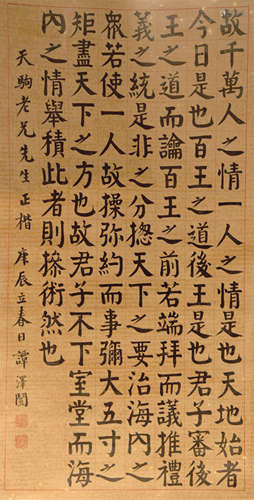 故千萬人之情一人之情是也天地始者
今日是也百王之道後王是也君子審後
王之道而論百王之前若端拜而議推禮
義之統是非之分摠天下之要治海內之
衆若使一人故操弥約而事彌大五寸之
矩盡天下之方也故君子不下室堂而海
內之情舉積此者則操術然也
天駒老兄先生正楷 庚辰立春日 譚澤闓